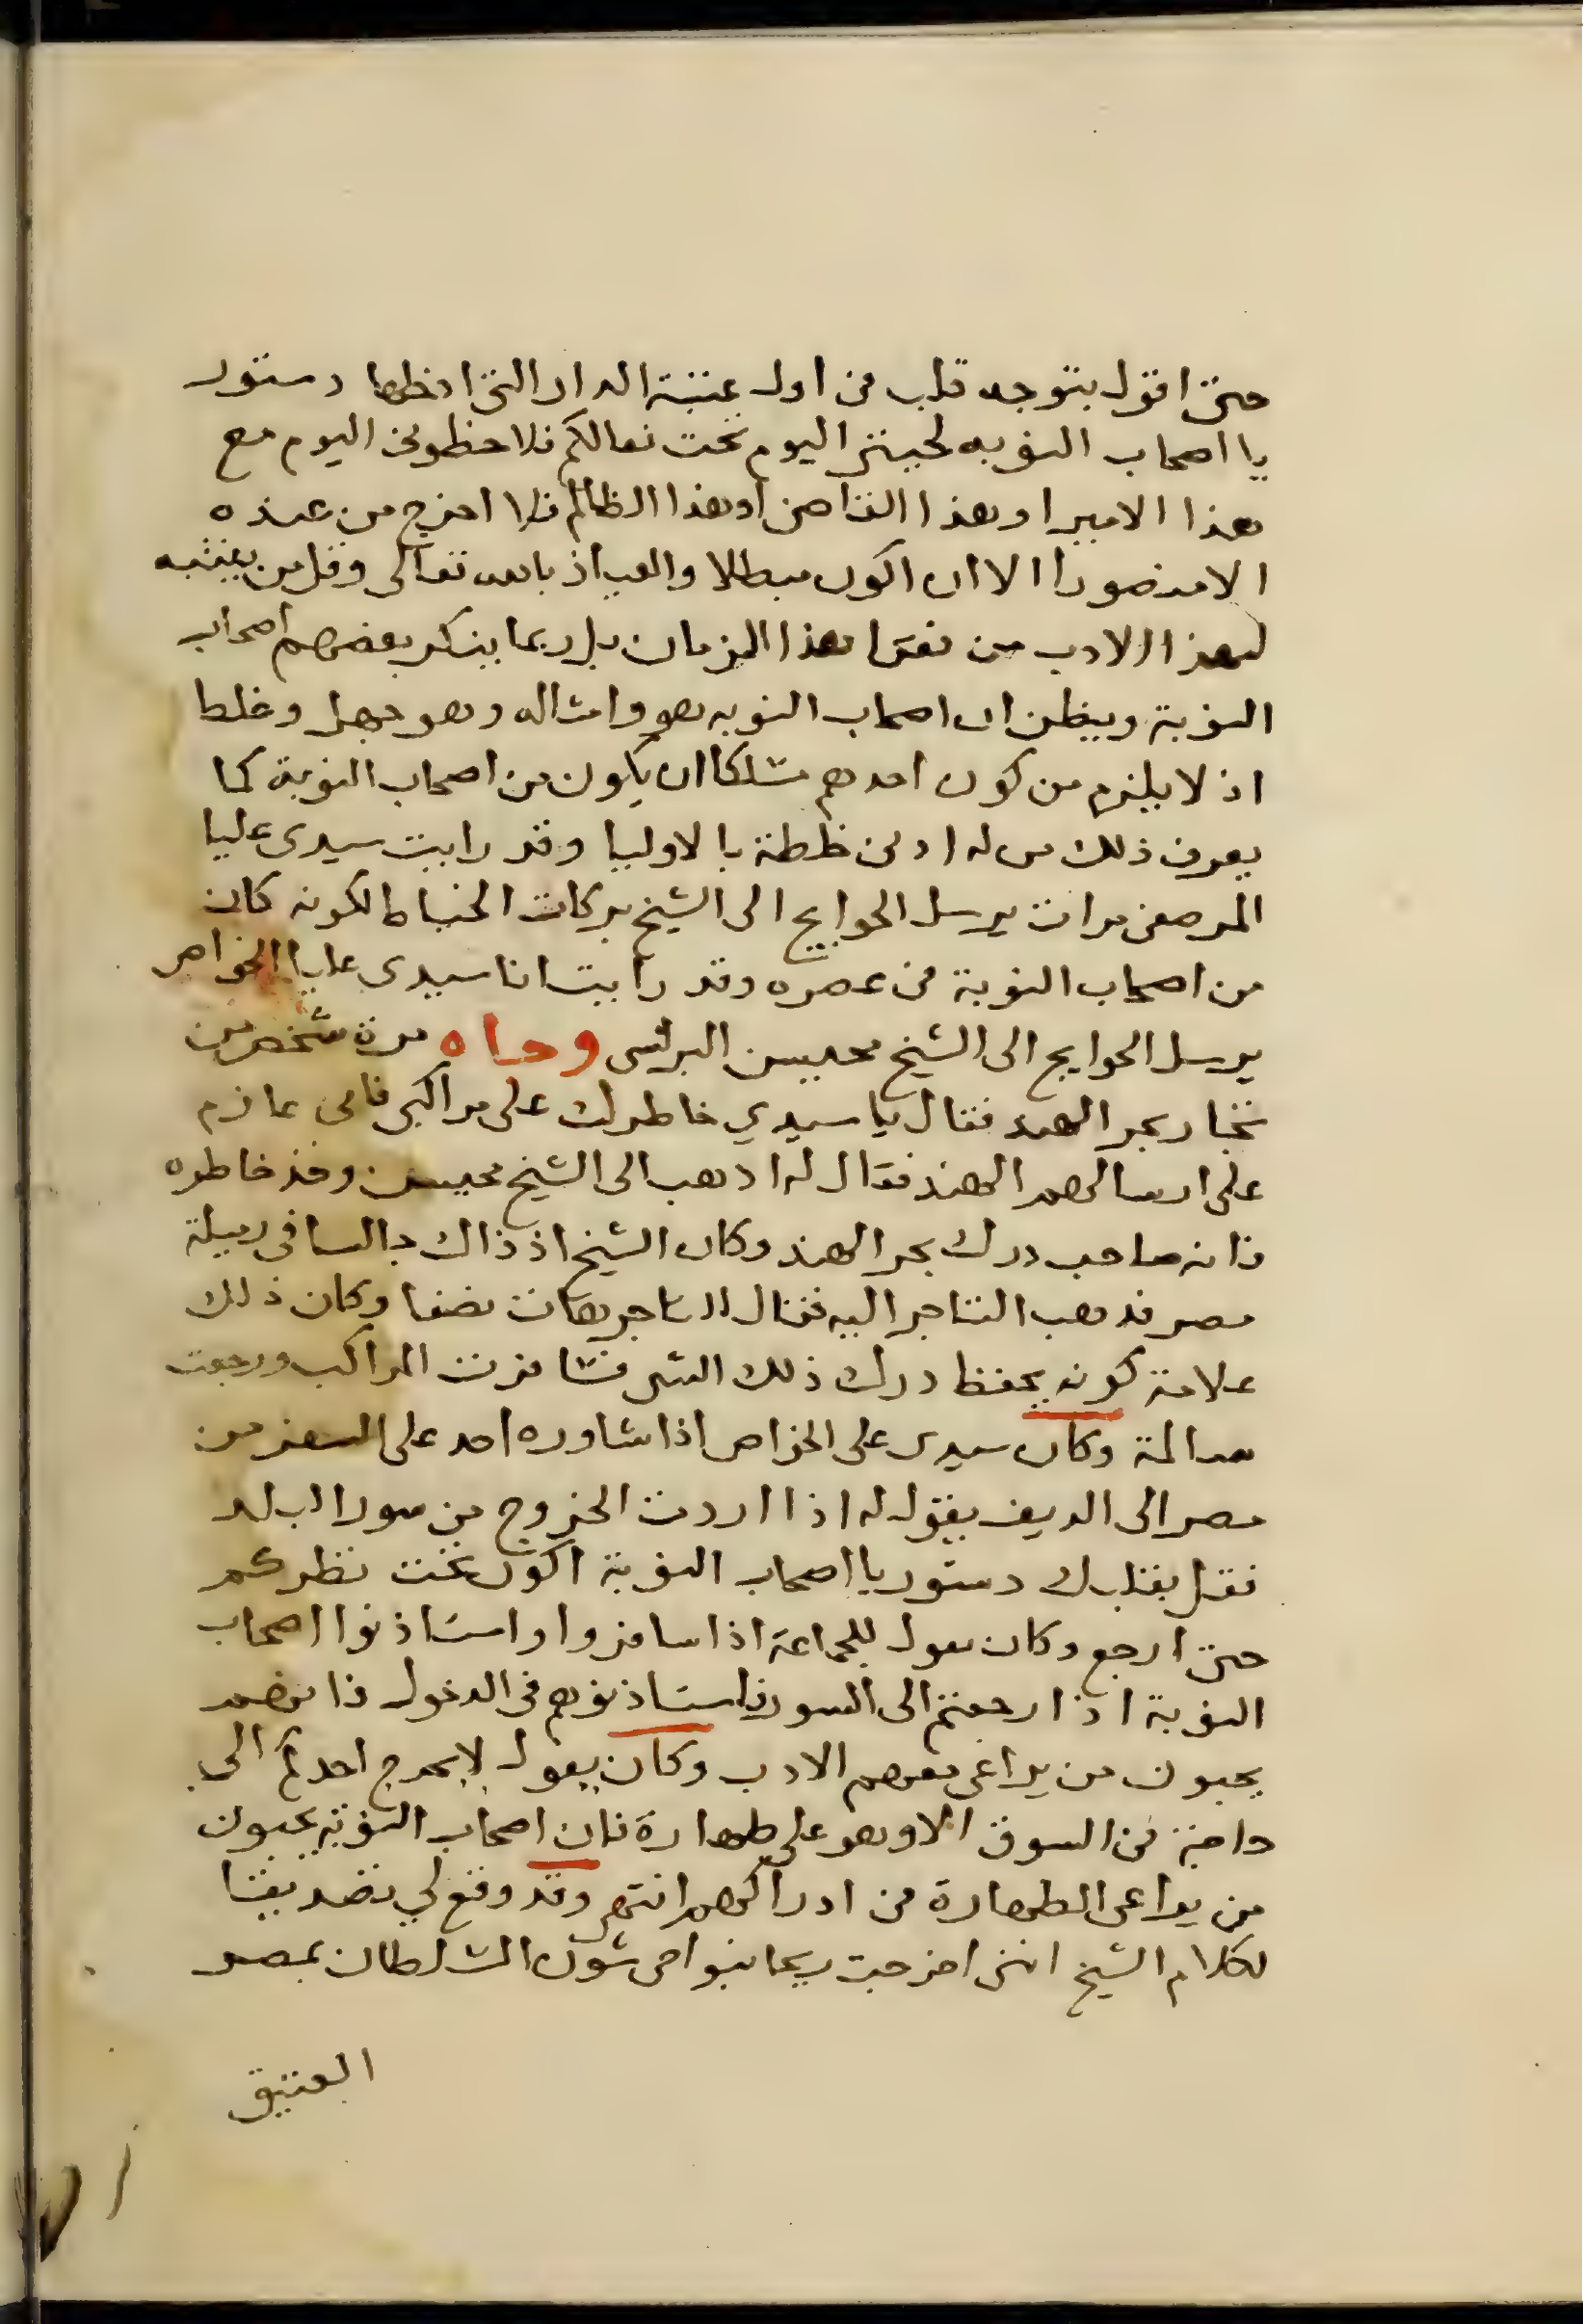 حتى اقول بتوجه قلب من اول عتبة الدار التى ادخلها دستور
يا اصحاب النوبه لحيتى اليوم تحت نعالكم فلاحظونى اليوم مع
هذا الامير او هذا القاضى او هذا الظالم فلا اخرج من عنده
الا منصورا الا ان اكون مبطلا والعياذ بالله تعالى وقل من يتنبه
لهذا الادب من فقرا هذا الزمان بل ربما ينكر بعضهم اصحاب
النوبة ويظن ان اصحاب النوبه هو وامثاله وهو جهل وغلط
اذ لا يلزم من كون احدهم مسلكا ان يكون من اصحاب النوبة كما
يعرف ذلك من له ادنى خلطة بالاوليا وقد رايت سيدى عليا
المرصفى مرات يرسل الحوايج الى الشيخ بركات الخياط لكونه كان
من اصحاب النوبة فى عصره وقد رايت انا سيدى عليا الخواص
يرسل الحوايج الى الشيخ محيسن البرلسى وجاه مرة شخص من
تجار بحر الهند فقال يا سيدي خاطرك على مراكبى فانى عازم
على ارسالهم الهند فقال له اذهب الى الشيخ محيسن وخذ خاطره
فانه صاحب درك بحر الهند وكان الشيخ اذ ذاك جالسا فى رميلة
مصر فذهب التاجر اليه فقال للتاجر هات نصفا وكان ذلك
علامة كونه يحفظ درك ذلك الشى فسافرت المراكب ورجعت
سالمة وكان سيدى على الخواص اذا شاوره احد على السفر من
مصر الى الريف يقول له اذا اردت الخروج من سور البلد
فقل بقلبك دستور يا اصحاب النوبة اكون تحت نظركم
حتى ارجع وكان يقول للجماعة اذا سافروا واستاذنوا اصحاب
النوبة اذا رجعتم الى السور فاستاذنوهم فى الدخول فانهم
يحبون من يراعى معهم الادب وكان يقول لا يخرج احدكم الى
حاجة فى السوق الا وهو على طهارة فان اصحاب النوبة يحبون
من يراعى الطهارة فى ادراكهم انتهى وقد وقع لي تصديقا
لكلام الشيخ اننى اخرجت ريحا بنواحى شون السلطان بمصر
العتيق